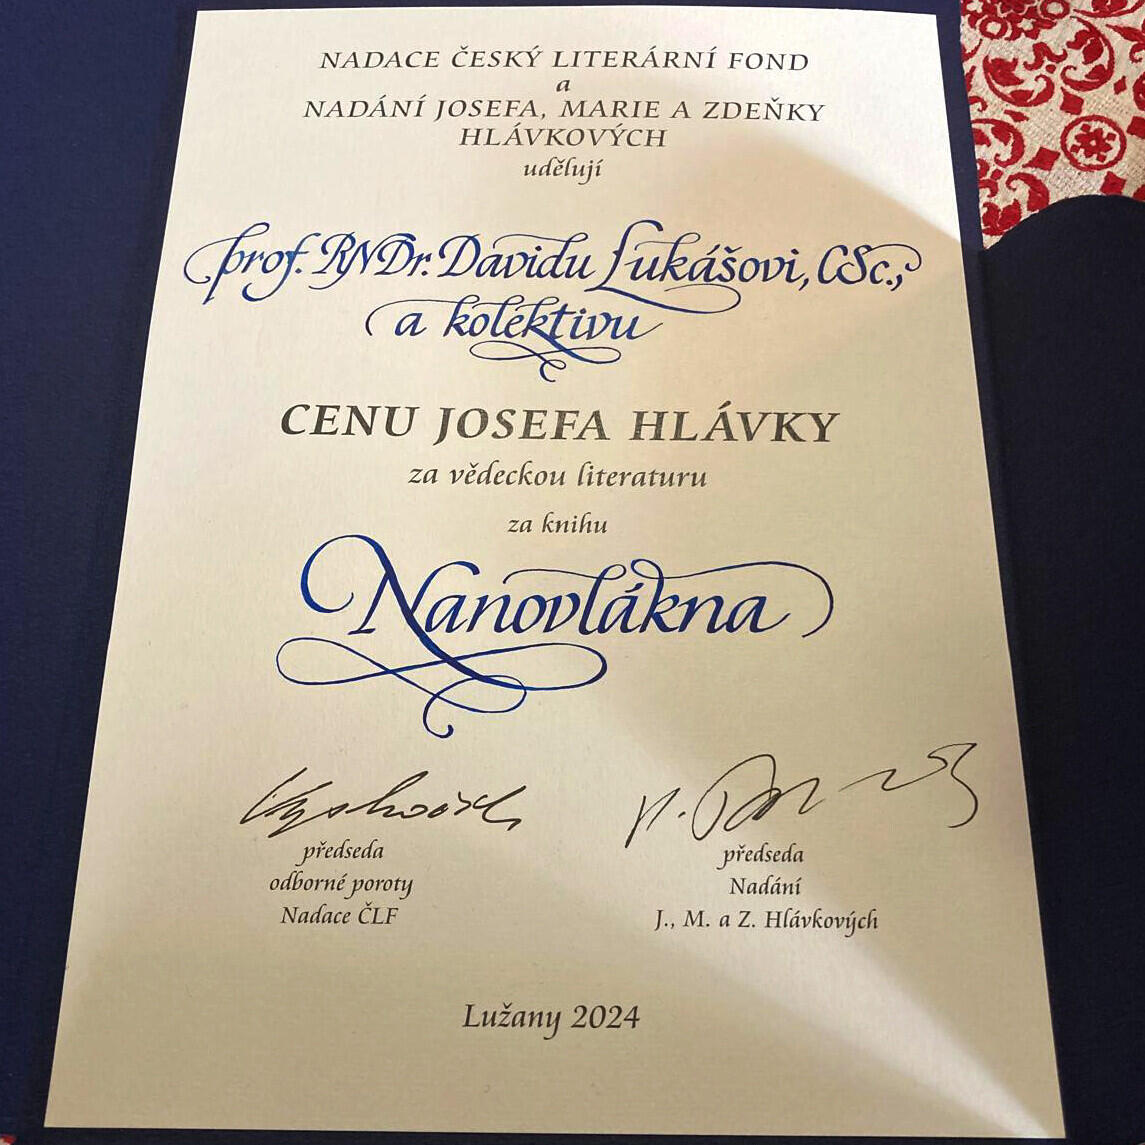 NADACE ČESKÝ LITERÁRNÍ FOND
a
NADÁNÍ JOSEFA, MARIE A ZDEŇKY
HLÁVKOVÝCH
udělují
prof. RNDr. Davidu Lukášovi, CSc.,
a kolektivu
CENU JOSEFA HLÁVKY
za vědeckou literaturu
za knihu
Nanovlákna
předseda
odborné poroty
Nadace ČLF
předseda
Nadání
J., M. a Z. Hlávkových
Lužany 2024